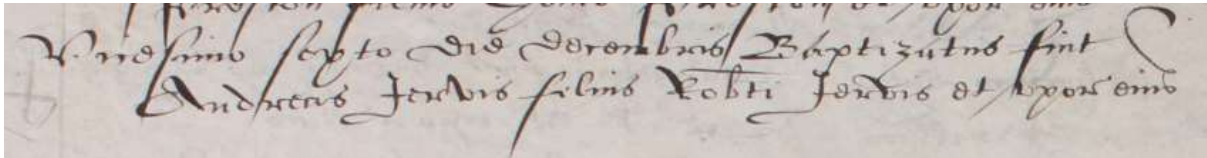 Vicesimo septo die decembris Baptizatus fuit
Andreas Jervis filius Robti Jervis et uxor eius